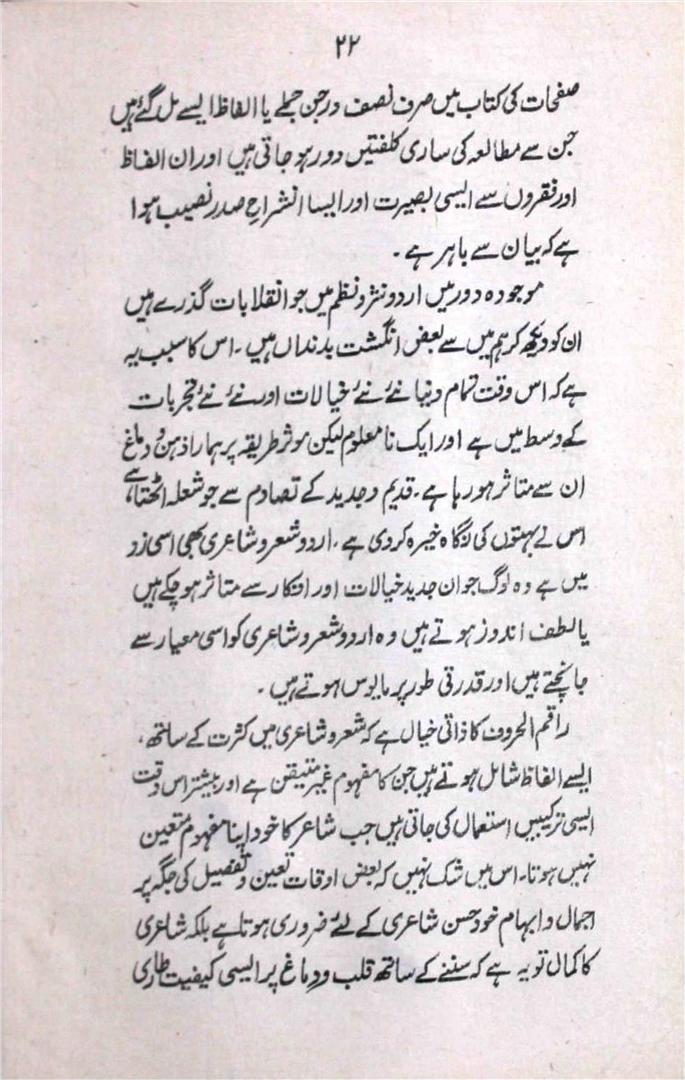 ۲۲
صفحات کی کتاب میں صرف نصف درجن جملے یا الفاظ ایسے مل گئے ہیں
جن سے مطالعہ کی ساری کلفتیں دور ہو جاتی ہیں اور ان الفاظ
اور فقروں سے ایسی بصیرت اور ایسا انشراحِ صدر نصیب ہوا
ہے کہ بیان سے باہر ہے ۔
موجودہ دور میں اردو نثر و نظم میں جو انقلابات گذرے ہیں
ان کو دیکھ کر ہم میں سے بعض انگشت بدنداں ہیں ۔ اس کا سبب یہ
ہے کہ اس وقت تمام دنیا نئے نئے خیالات اور نئے نئے تجربات
کے وسط میں ہے اور ایک نامعلوم لیکن موثر طریقہ پر ہمارا ذہن و دماغ
ان سے متاثر ہو رہا ہے ۔ قدیم و جدید کے تصادم سے جو شعلہ اٹھتا ہے
اس نے بہتوں کی نگاہ خیرہ کر دی ہے ۔ اردو شعر و شاعری بھی اسی زد
میں ہے وہ لوگ جو ان جدید خیالات اور افکار سے متاثر ہو چکے ہیں
یا لطف اندوز ہوتے ہیں وہ اردو شعر و شاعری کو اسی معیار سے
جانچتے ہیں اور قدرتی طور پر مایوس ہوتے ہیں ۔
راقم الحروف کا ذاتی خیال ہے کہ شعر و شاعری میں کثرت کے ساتھ،
ایسے الفاظ شامل ہوتے ہیں جن کا مفہوم غیر متیقن ہے اور بیشتر اس وقت
ایسی ترکیبیں استعمال کی جاتی ہیں جب شاعر کا خود اپنا مفہوم متعین
نہیں ہوتا۔ اس میں شک نہیں کہ بعض اوقات تعین و تفصیل کی جگہ پر
اجمال و ابہام خود حسن شاعری کے لئے ضروری ہوتا ہے بلکہ شاعری
کا کمال تو یہ ہے کہ سننے کے ساتھ قلب و دماغ پر ایسی کیفیت طاری